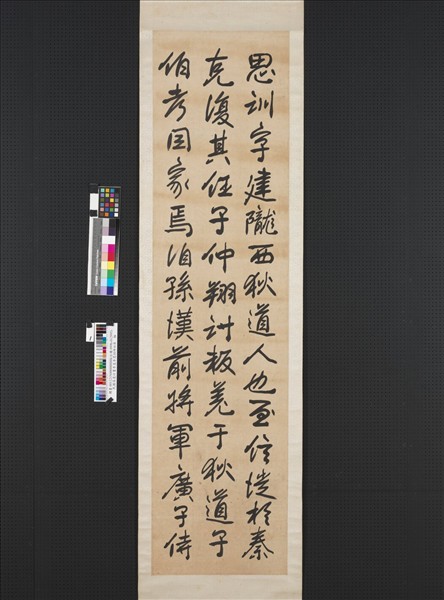 思訓字建隴西狄道人也至信徙於秦
克復其任子仲翔討叛羌于狄道子
伯考因家焉洎孫漢前將軍廣子侍